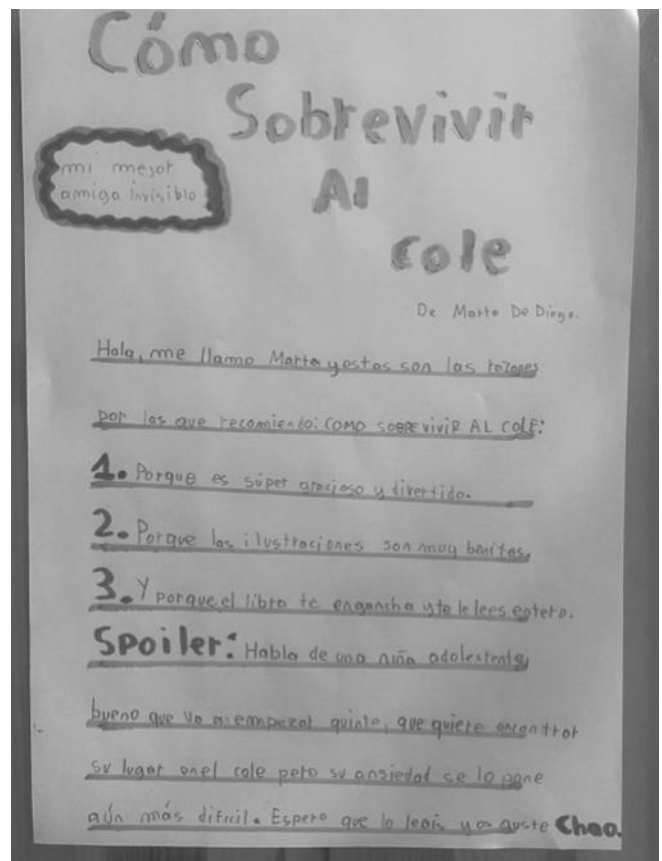 Cómo
Sobrevivir
Al
cole
mi mejor
amigo invisible
De Marta De Diego.
Hola, me llamo Marta y estas son las razones
por las que recomiendo: COMO SOBREVIVIR AL COLE:
1. Porque es súper gracioso y divertido.
2. Porque las ilustraciones son muy bonitas,
3. Y porque el libro te engancha y te le lees entero.
Spoiler: Habla de una niña adolestente,
bueno que va a empezar quinto, que quiere encontrar
su lugar en el cole pero su ansiedad se lo pone
aún más dificil. Espero que lo leais y os guste Chao.